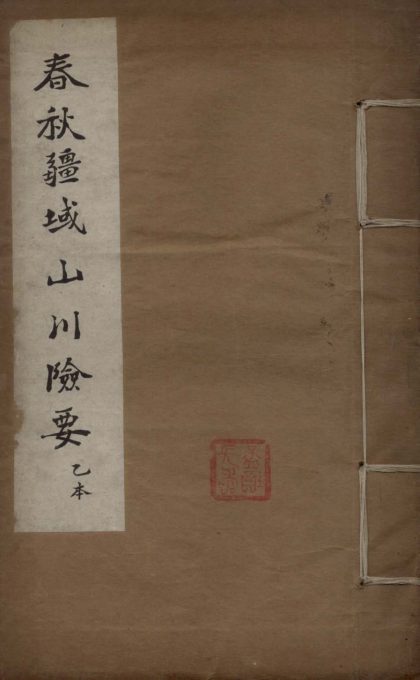 春秋疆域山川險要
乙本